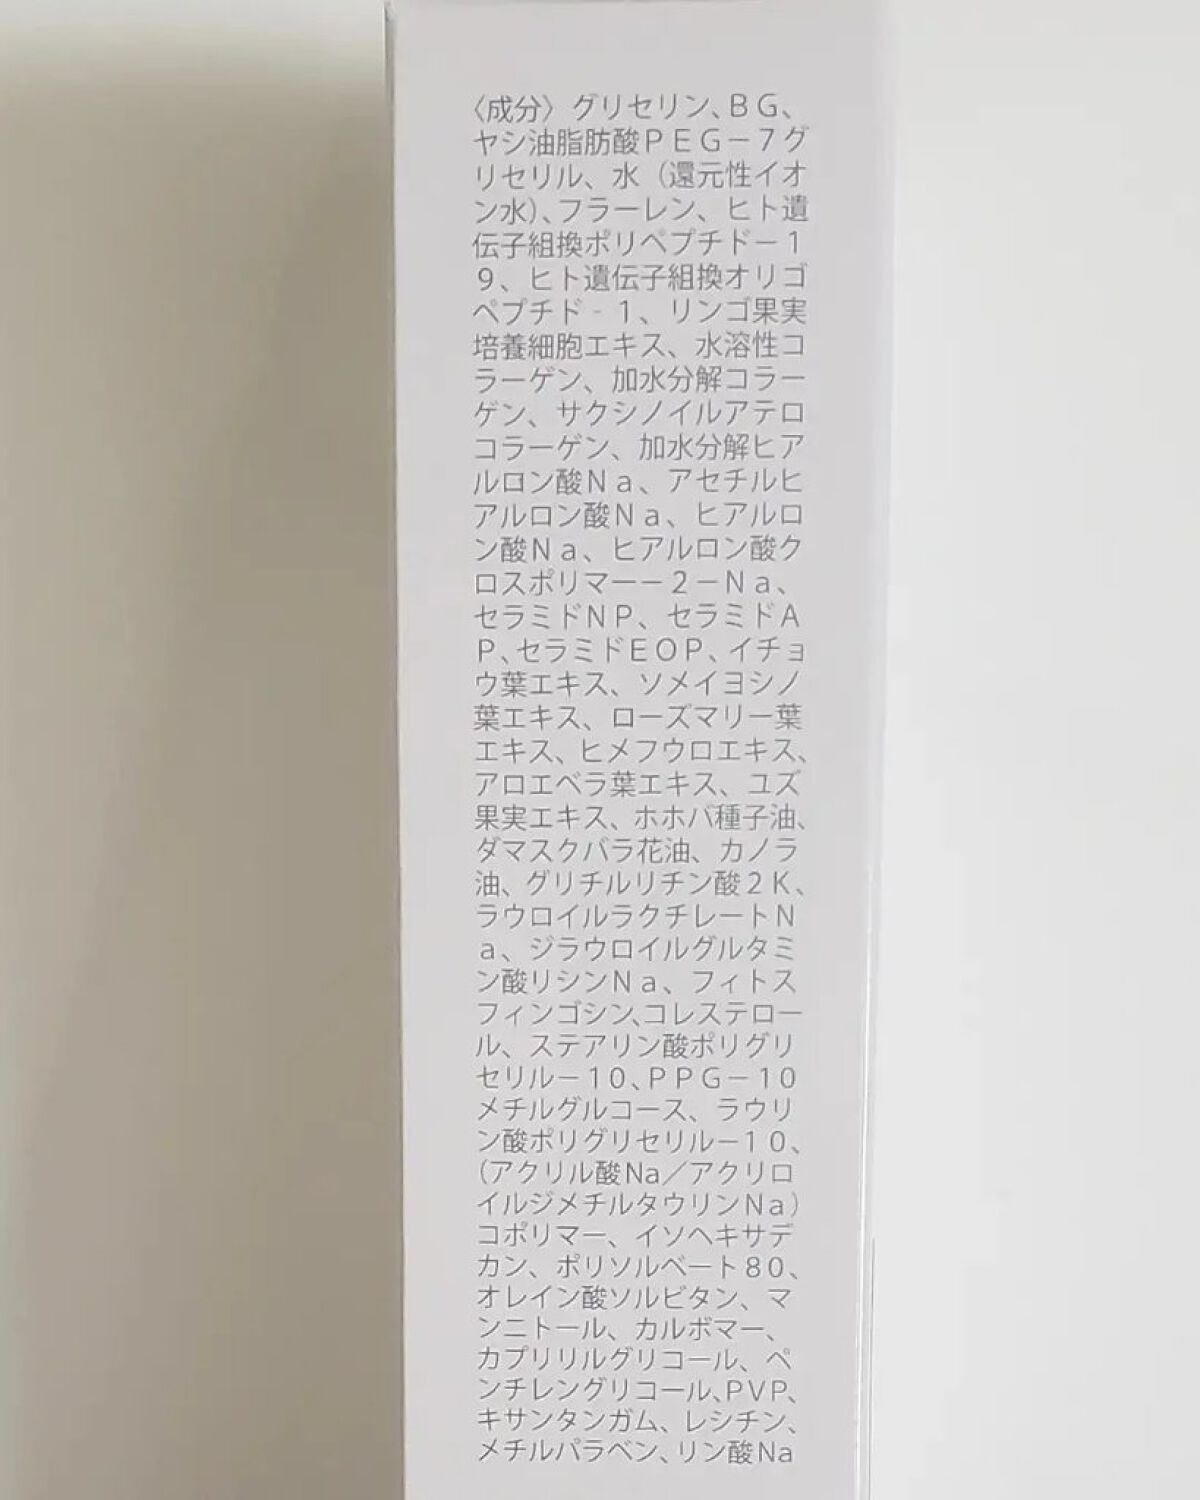 〈成分〉グリセリン、BG、
ヤシ油脂肪酸PEG－7グ
リセリル、水（還元性イオ
ン水）、フラーレン、ヒト遺
伝子組換ポリペプチド－1
9、ヒト遺伝子組換オリゴ
ペプチド‐1、リンゴ果実
培養細胞エキス、水溶性コ
ラーゲン、加水分解コラー
ゲン、サクシノイルアテロ
コラーゲン、加水分解ヒア
ルロン酸Na、アセチルヒ
アルロン酸Na、ヒアルロ
ン酸Na、ヒアルロン酸ク
ロスポリマー－2－Na、
セラミドNP、セラミドA
P、セラミドEOP、イチョ
ウ葉エキス、ソメイヨシノ
葉エキス、ローズマリー葉
エキス、ヒメフウロエキス、
アロエベラ葉エキス、ユズ
果実エキス、ホホバ種子油、
ダマスクバラ花油、カノラ
油、グリチルリチン酸2K、
ラウロイルラクチレートN
a、ジラウロイルグルタミ
ン酸リシンNa、フィトス
フィンゴシン、コレステロー
ル、ステアリン酸ポリグリ
セリル－10、PPG－10
メチルグルコース、ラウリ
ン酸ポリグリセリル－10、
（アクリル酸Na／アクリロ
イルジメチルタウリンNa）
コポリマー、イソヘキサデ
カン、ポリソルベート80、
オレイン酸ソルビタン、マ
ンニトール、カルボマー、
カプリリルグリコール、ペ
ンチレングリコール、PVP、
キサンタンガム、レシチン、
メチルパラベン、リン酸Na